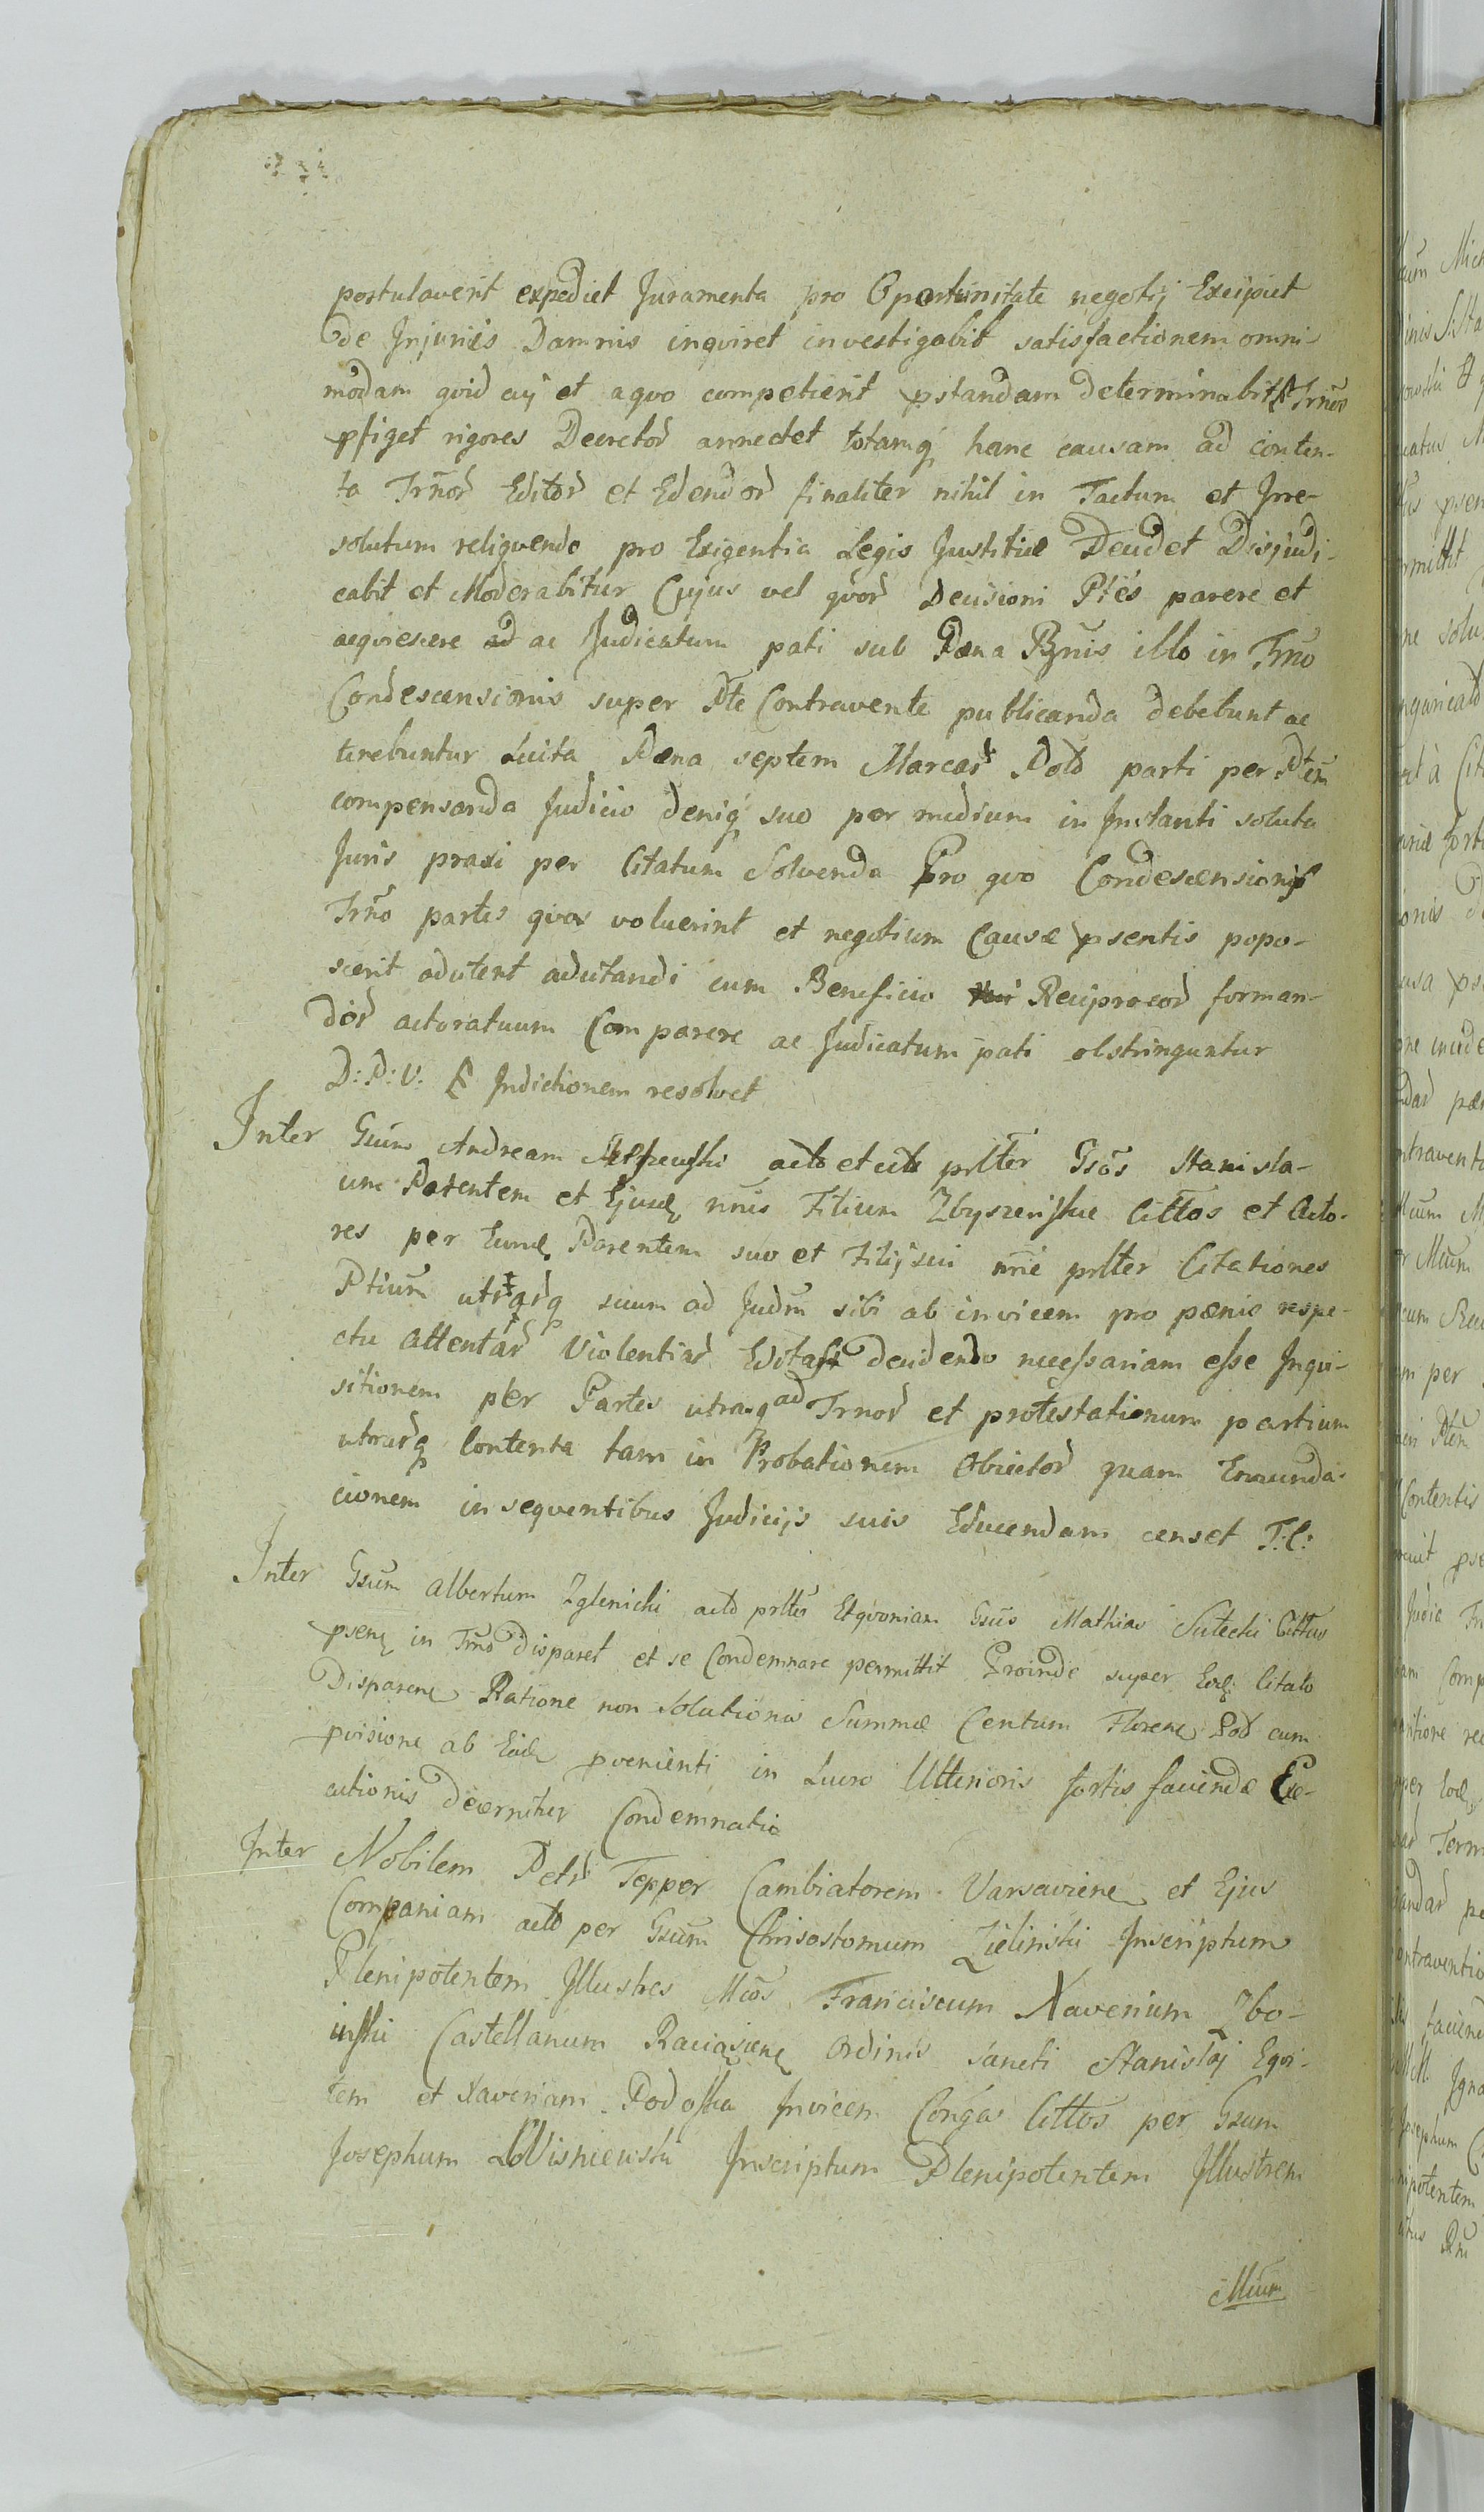 postulaverit expediet Juramenta pro Oportunitate negotij Excipiet
de Injuriis Damnis inqviret investigabit satisfactionem omni-
modam qvid cuj et aqvo competierit pstandam determinabit Trnos
pfiget rigores Decretor̃ annectet totamq̃ hanc causam ad conten-
ta Trn̄or̃ Editor̃ et Edendor̃ finaliter nihil in Tactum et Irre-
solutum reliqvendo pro Exigentia Legis Justitiæ Decidet Disjudi-
cabit et Moderabitur Cujus vel qvor̃ Decisioni Ptes parere et
acqviescere ad ac Judicatum pati sub Pæna Bn̄is illo in Trn̄o
Condescensionis super Pte Contravente publicanda debebunt ac
tenebuntur Luita Pæna septem Marcar̃ Polo parti per Ptem
compensanda Judicio deniq̃ suo per medium in Instanti soluta
Juris praxi per Citatum Solvenda Pro qvo Condescensionis
Trn̄o partes qvos voluerint et negotium Causæ psentis popo-
scerit adcitent adcitandi cum Beneficio Reciprocor̃ forman-
dor̃ actoratuum Comparere ac Judicatum pati obstringuntur
D: P: V: Indictionem resolvet
Inter Gsum Andream acto et cito pltter Gsos Stanisla-
um Parentem et Ejusd̨ nn̄is Filium Zbyszewskie Cittos et Acto-
res per Eund̨ Parentem suo et Filij sui nn̄ie pltter Citationes
Ptium utrarq̃ suum ad Judm̄ sibi ab invicem pro pænis respe-
ctu attentar̃ Violentiar̃ Editas decidendo necessariam esse Inqvi-
sitionem per Partes utrasq̃ ad Trnor̃ et protestationum partium
utrarq̃ contenta tam in Probationem Obiector̃ quam Emunda-
cionem in seqventibus Judicijs suis Educendam censet T: C:
Inter Gsum Albertum Zglenicki acto pltter Etqvoniam Gsus Mathias Sutecki Cittus
psenę in Trn̄o disparet et se Condemnare permittit Proinde super Eod̨ Citato
Disparenę Ratione non Solutionis Summæ Centum Florenę Pol cum
pvisione ab Eide pvenienti in Lucro Ulterioris fortis faciendæ Exe-
cutionis decernitur Condemnatio
Inter Nobilem Petr̃ Tepper Cambiatorem Varsaviene et Ejus
Companiam acto per Gsum Chrisostomum Zielinski Inscriptum
Plenipotentem Illustres Mcos Franciscum Xaverium Zbo-
inski Castellanum Raciązienę Ordinis Sancti Stanislaj Eqvi-
tem et Xaveriam Podoska Invicem Conges Cittos per Gsum
Josephum Wisniewski Inscriptum Plenipotentem Illustrem
Mcum